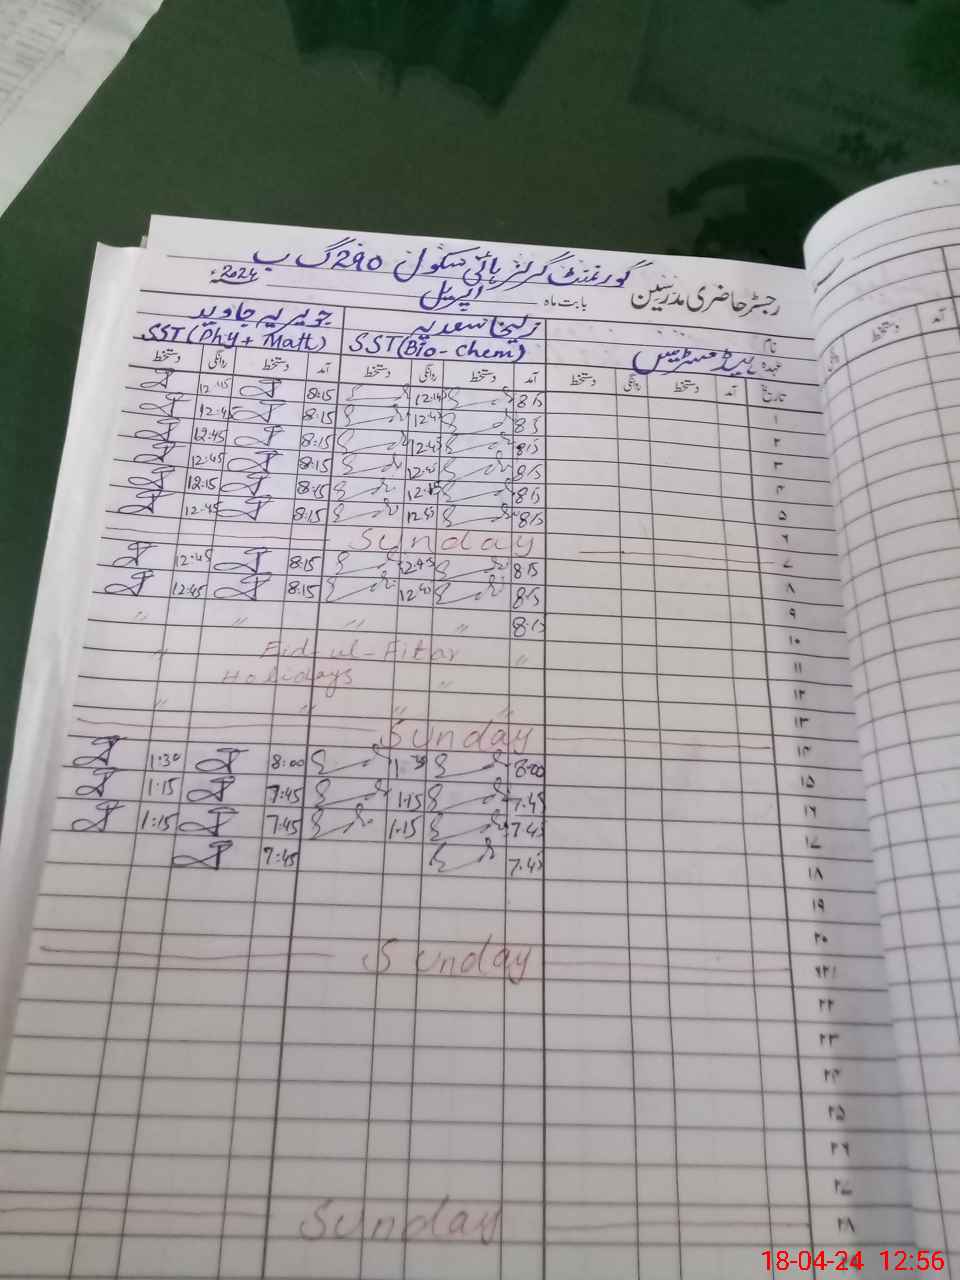 گورنمنٹ گرلز ہائی سکول 290 گ ب
رجسٹر حاضری مدرسین بابت ماہ اپریل 2024ء
نام زلیخا سعدیہ جویریہ جاوید
عہدہ ہیڈ مسٹریس SST (Bio-Chem) SST (Phy + Math)
تاریخ آمد دستخط روانگی دستخط آمد دستخط روانگی دستخط آمد دستخط روانگی دستخط
۱ 8:15 12:45 8:15 12:45
۲ 8:15 12:45 8:15 12:45
۳ 8:15 12:45 8:15 12:45
۴ 8:15 12:45 8:15 12:45
۵ 8:15 12:15 8:15 12:15
۶ 8:15 12:45 8:15 12:45
۷ Sunday
۸ 8:15 12:45 8:15 12:45
۹ 8:15 12:40 8:15 12:45
۱۰ 8:15 " " " "
۱۱ " Eid-ul-Fitar "
۱۲ " Holidays
۱۳ " " " "
۱۴ Sunday
۱۵ 8:00 1:30 8:00 1:30
۱۶ 7:45 1:15 7:45 1:15
۱۷ 7:45 1:15 7:45 1:15
۱۸ 7:45 7:45
۱۹
۲۰
۲۱ Sunday
۲۲
۲۳
۲۴
۲۵
۲۶
۲۷
۲۸ Sunday
آمد دستخط روانگی
18-04-24 12:56